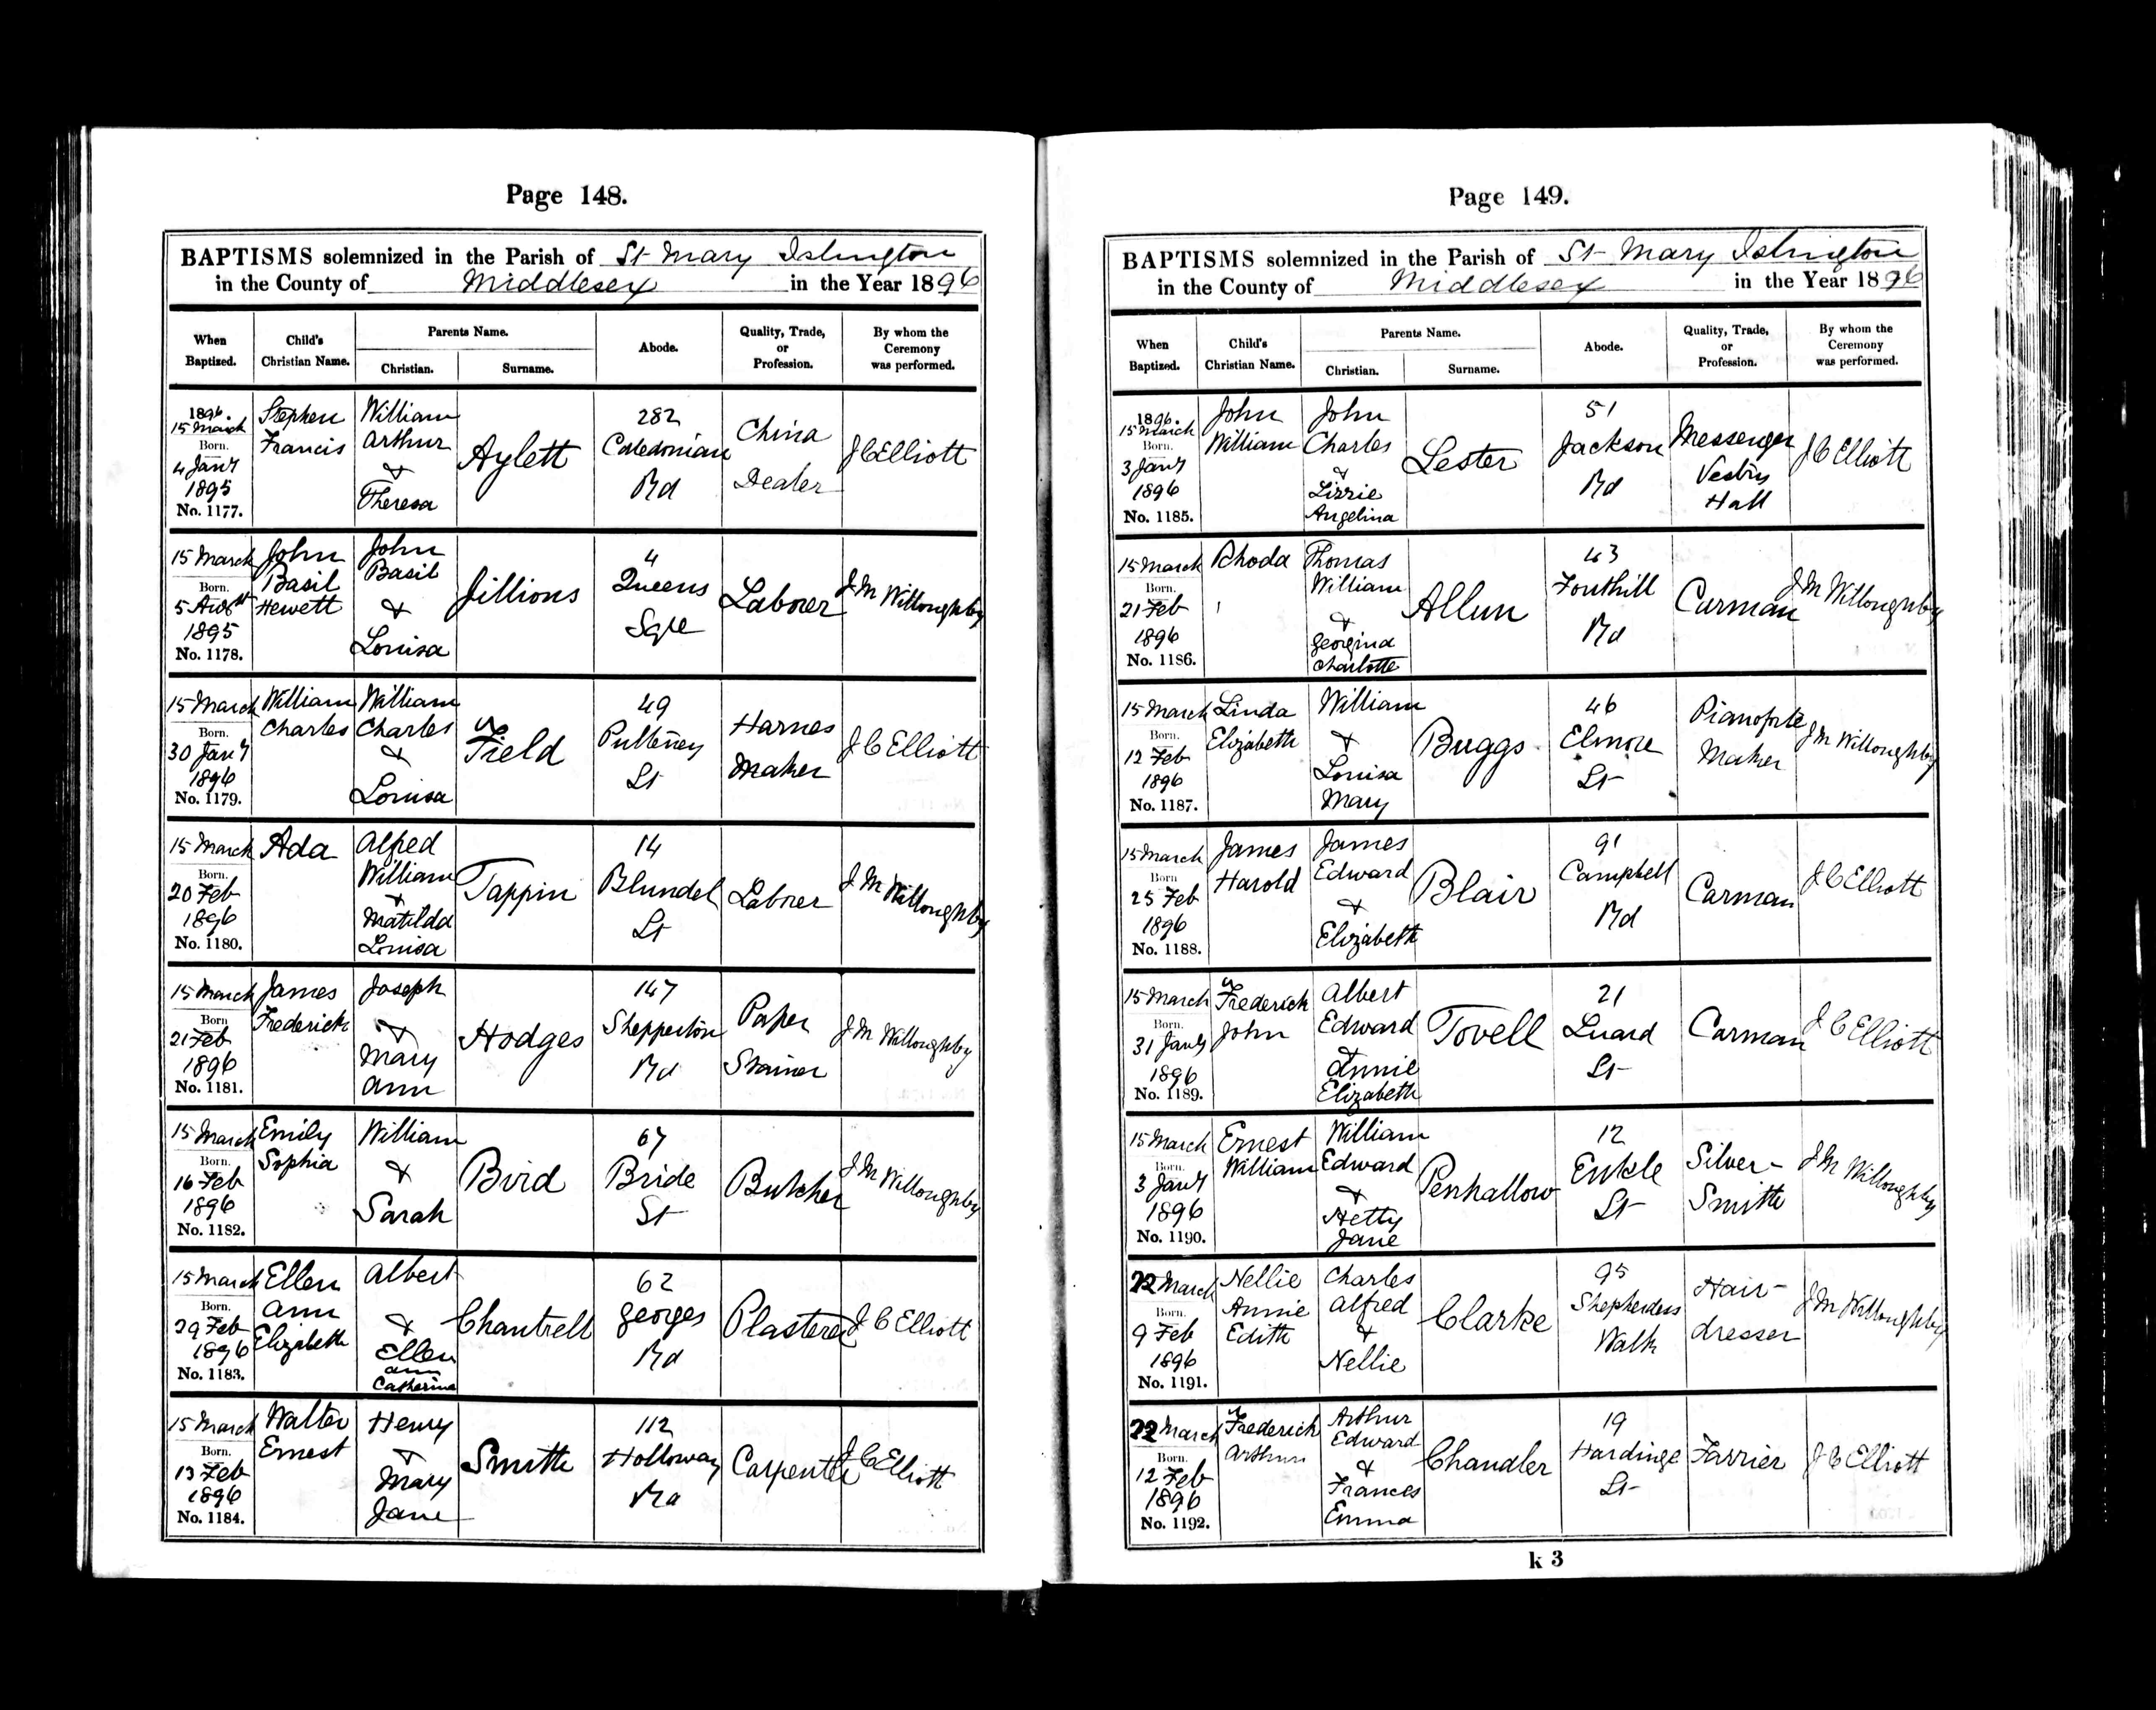 Page 148.
BAPTISMS solemnized in the Parish of St Mary Islington
in the County of Middlesex in the Year 1896
When Baptized. Child's Christian Name. Parents Name. Christian. Surname. Abode. Quality, Trade, or Profession. By whom the Ceremony was performed.
1896. 15 March Born. 4 Jany 1895 No. 1177. Stephen Francis William Arthur & Theresa Aylett 282 Caledonian Rd China Dealer J C Elliott
15 March Born. 5 Augst 1895 No. 1178. John Basil Hewett John Basil & Louisa Jillions 4 Queens Sqre Laborer J M Willoughby
15 March Born. 30 Jany 1896 No. 1179. William Charles William Charles & Louisa Field 49 Pulteney St Harnes Maker J C Elliott
15 March Born. 20 Feb 1896 No. 1180. Ada Alfred William & Matilda Louisa Tappin 14 Blundel St Laborer J M Willoughby
15 March Born 21 Feb 1896 No. 1181. James Frederick Joseph & Mary Ann Hodges 147 Shepperton Rd Paper Stainer J M Willoughby
15 March Born. 16 Feb 1896 No. 1182. Emily Sophia William & Sarah Bird 67 Bride St Butcher J M Willoughby
15 March Born. 29 Feb 1896 No. 1183. Ellen Ann Elizabeth Albert & Ellen Ann Catherine Chantrell 62 Georges Rd Plasterer J C Elliott
15 March Born. 13 Feb 1896 No. 1184. Walter Ernest Henry & Mary Jane Smith 112 Holloway Rd Carpenter J C Elliott
Page 149.
BAPTISMS solemnized in the Parish of St Mary Islington
in the County of Middlesex in the Year 1896
When Baptized. Child's Christian Name. Parents Name. Christian. Surname. Abode. Quality, Trade, or Profession. By whom the Ceremony was performed.
1896. 15 March Born. 3 Jany 1896 No. 1185. John William John Charles & Lizzie Angelina Lester 51 Jackson Rd Messenger Vestry Hall J C Elliott
15 March Born. 21 Feb 1896 No. 1186. Rhoda Thomas William & Georgina Charlotte Allun 43 Fonthill Rd Carman J M Willoughby
15 March Born. 12 Feb 1896 No. 1187. Linda Elizabeth William & Louisa Mary Buggs 46 Elmore St Pianoforte Maker J M Willoughby
15 March Born 25 Feb 1896 No. 1188. James Harold James Edward & Elizabeth Blair 91 Campbell Rd Carman J C Elliott
15 March Born. 31 Jany 1896 No. 1189. Frederick John Albert Edward & Annie Elizabeth Tovell 21 Luard St Carman J C Elliott
15 March Born. 3 Jany 1896 No. 1190. Ernest William William Edward & Hetty Jane Penhallow 12 Enkle St Silver-Smith J M Willoughby
22 March Born. 9 Feb 1896 No. 1191. Nellie Annie Edith Charles Alfred & Nellie Clarke 95 Shepherdess Walk Hair-dresser J M Willoughby
22 March Born. 12 Feb 1896 No. 1192. Frederick Arthur Arthur Edward & Frances Emma Chandler 19 Hardinge St Farrier J C Elliott
k 3